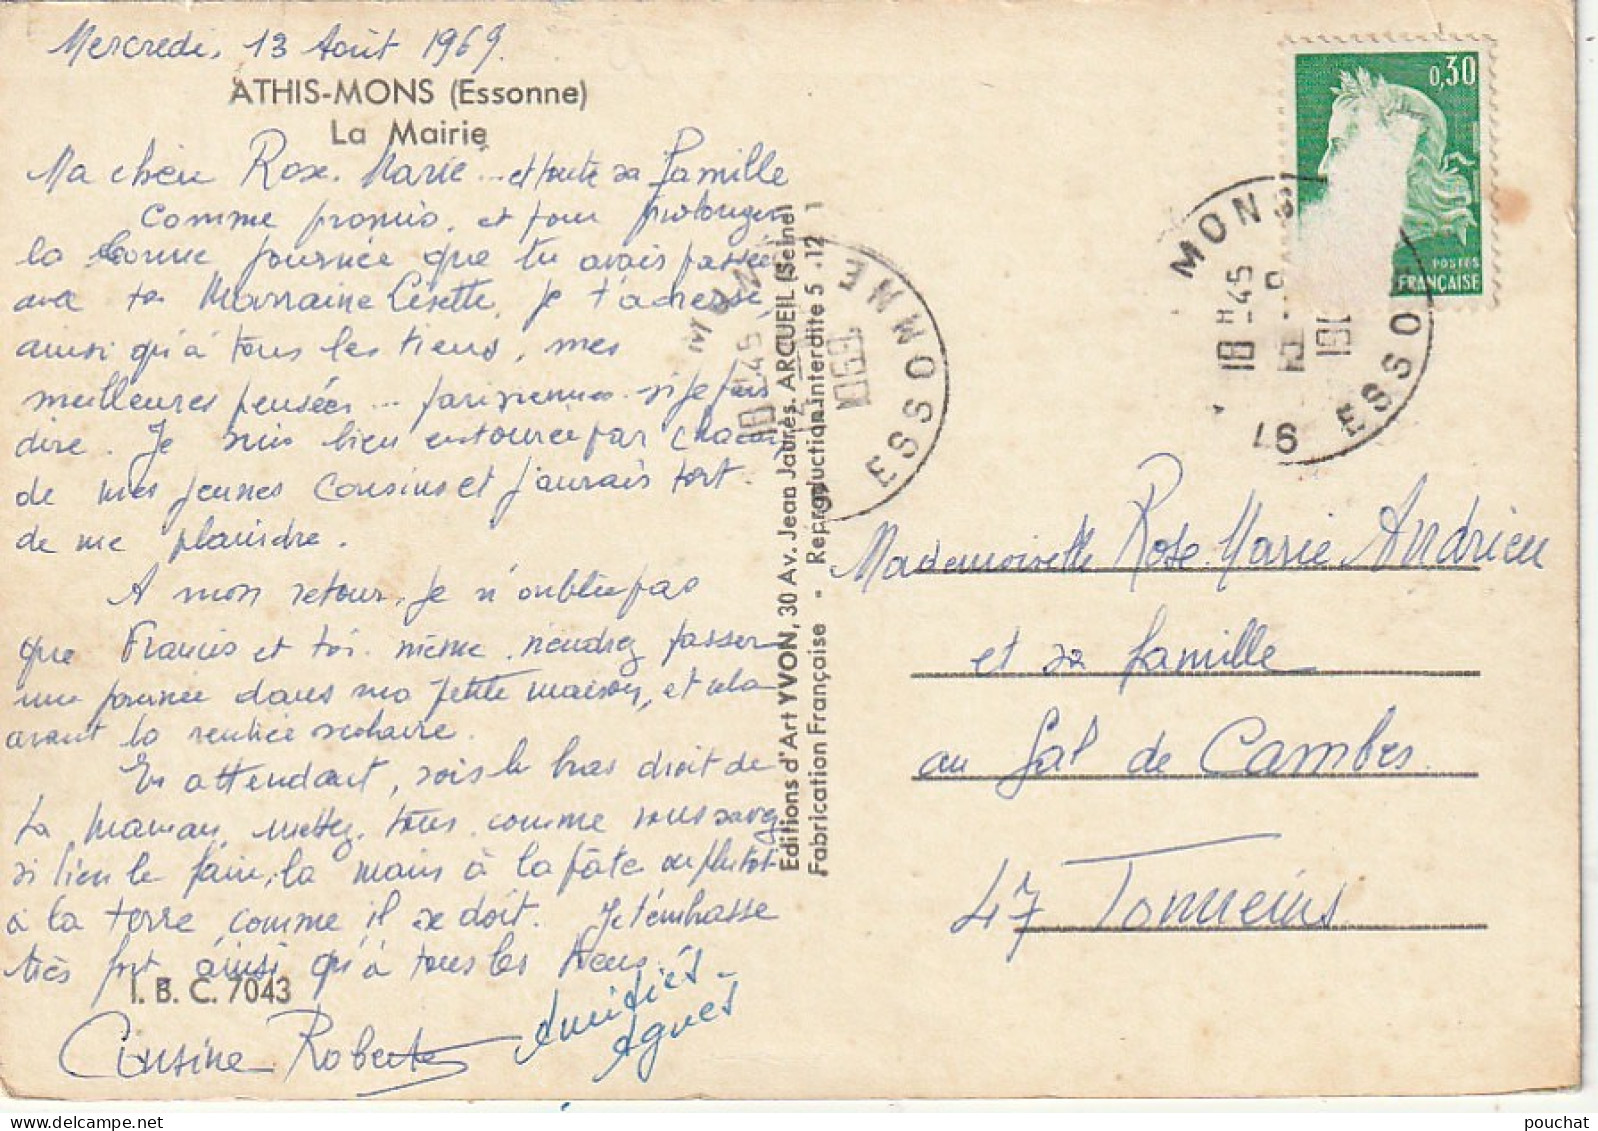 Mercredi, 13 Août 1969.
ATHIS-MONS (Essonne)
La Mairie
Ma chère Rose-Marie... et toute sa famille
Comme promis, et pour prolonger
la bonne journée que tu avais passée
avec ta Marraine Lisette, je t'adresse,
ainsi qu'à tous les tiens, mes
meilleures pensées... parisiennes si je puis
dire. Je suis bien entourée par chacun
de mes jeunes cousins et j'aurais tort
de me plaindre.
A mon retour, je n'oublie pas
que Francis et toi-même viendrez passer
une journée dans ma petite maison, et cela
avant la rentrée scolaire.
En attendant, sois le bras droit de
ta Maman, mettez tous, comme vous savez
si bien le faire, la main à la pâte ou plutôt
à la terre, comme il se doit. Je t'embrasse
très fort ainsi qu'à tous les tiens.
I. B. C. 7043
Cousine Roberte
Amitiés -
Agnès
Editions d'Art YVON, 30 Av. Jean Jaurès. ARCUEIL (Seine)
Fabrication Française - Reproduction Interdite 5 .12
MONS
18H45
1969
ESSONNE
0,30
POSTES
FRANÇAISE
MONS
18H-45
19
91 ESSO
Mademoiselle Rose-Marie Andrieu
et sa famille
au Gal de Cambes
47 Tonneins
pouchat